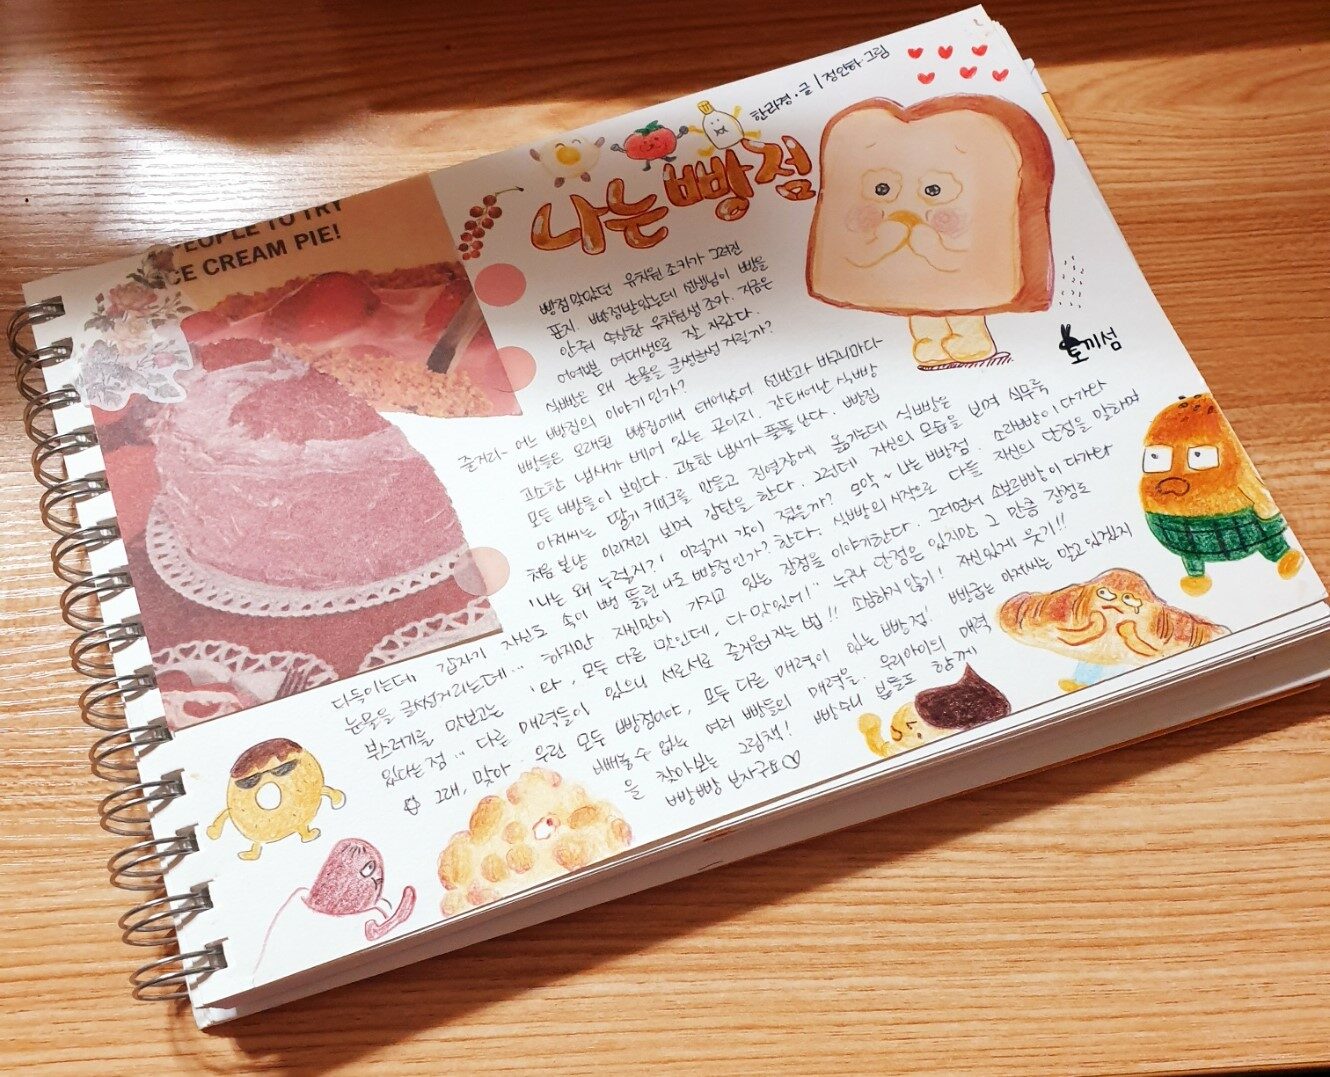 PEOPLE TO TRY
ICE CREAM PIE!
한라경·글 | 정인하·그림
나는 빵점
토끼섬
빵점 맞았던 유치원 조카가 그려진
표지. 빵점 받았는데 선생님이 빵을
안줘 속상한 유치원생 조카. 지금은
어여쁜 여대생으로 잘 자랐다.
식빵은 왜 눈물을 글썽글썽 거릴까?
어느 빵집의 이야기인가?
빵들은 오래된 빵집에서 태어났어 선반과 바구니마다
고소한 냄새가 베어 있는 곳이지. 갓태어난 식빵
모든 빵들이 보인다. 고소한 냄새가 폴폴 난다. 빵집
아저씨는 딸기 케이크를 만들고 진열장에 옮기는데 식빵은
처음 본냥 이리저리 보며 감탄을 한다. 그런데 자신의 모습을 보며 시무룩
'나는 왜 누렇지?' 이렇게 각이 졌을까? 모약~ 나는 빵점. 소라빵이 다가와
갑자기 자신도 속이 뻥 뚫린 나도 빵점인가? 한다. 식빵의 시작으로 다들 자신의 단점을 말하며
눈물을 글썽거리는데... 하지만 자신만이 가지고 있는 장점을 이야기한다. 그러면서 소보로빵이 다가와
다독이는데
부스러기를 맛보고는 '와, 모두 다른 맛인데, 다 맛있어!' 누구나 단점은 있지만 그 만큼 장점도
있다는 점... 다른 매력들이 있으니 서로서로 즐거워지는 법!! 소심하지 않기! 자신있게 웃기!!
그래, 맞아. 우린 모두 빵점이야, 모두 다른 매력이 있는 빵점! 빵굽는 아저씨는 알고 있겠지
빼놓을 수 없는 여러 빵들의 매력을. 우리아이의 매력
을 찾아보는 그림책! 빵수니 분들도 함께
빵빵빵 본자구요♡